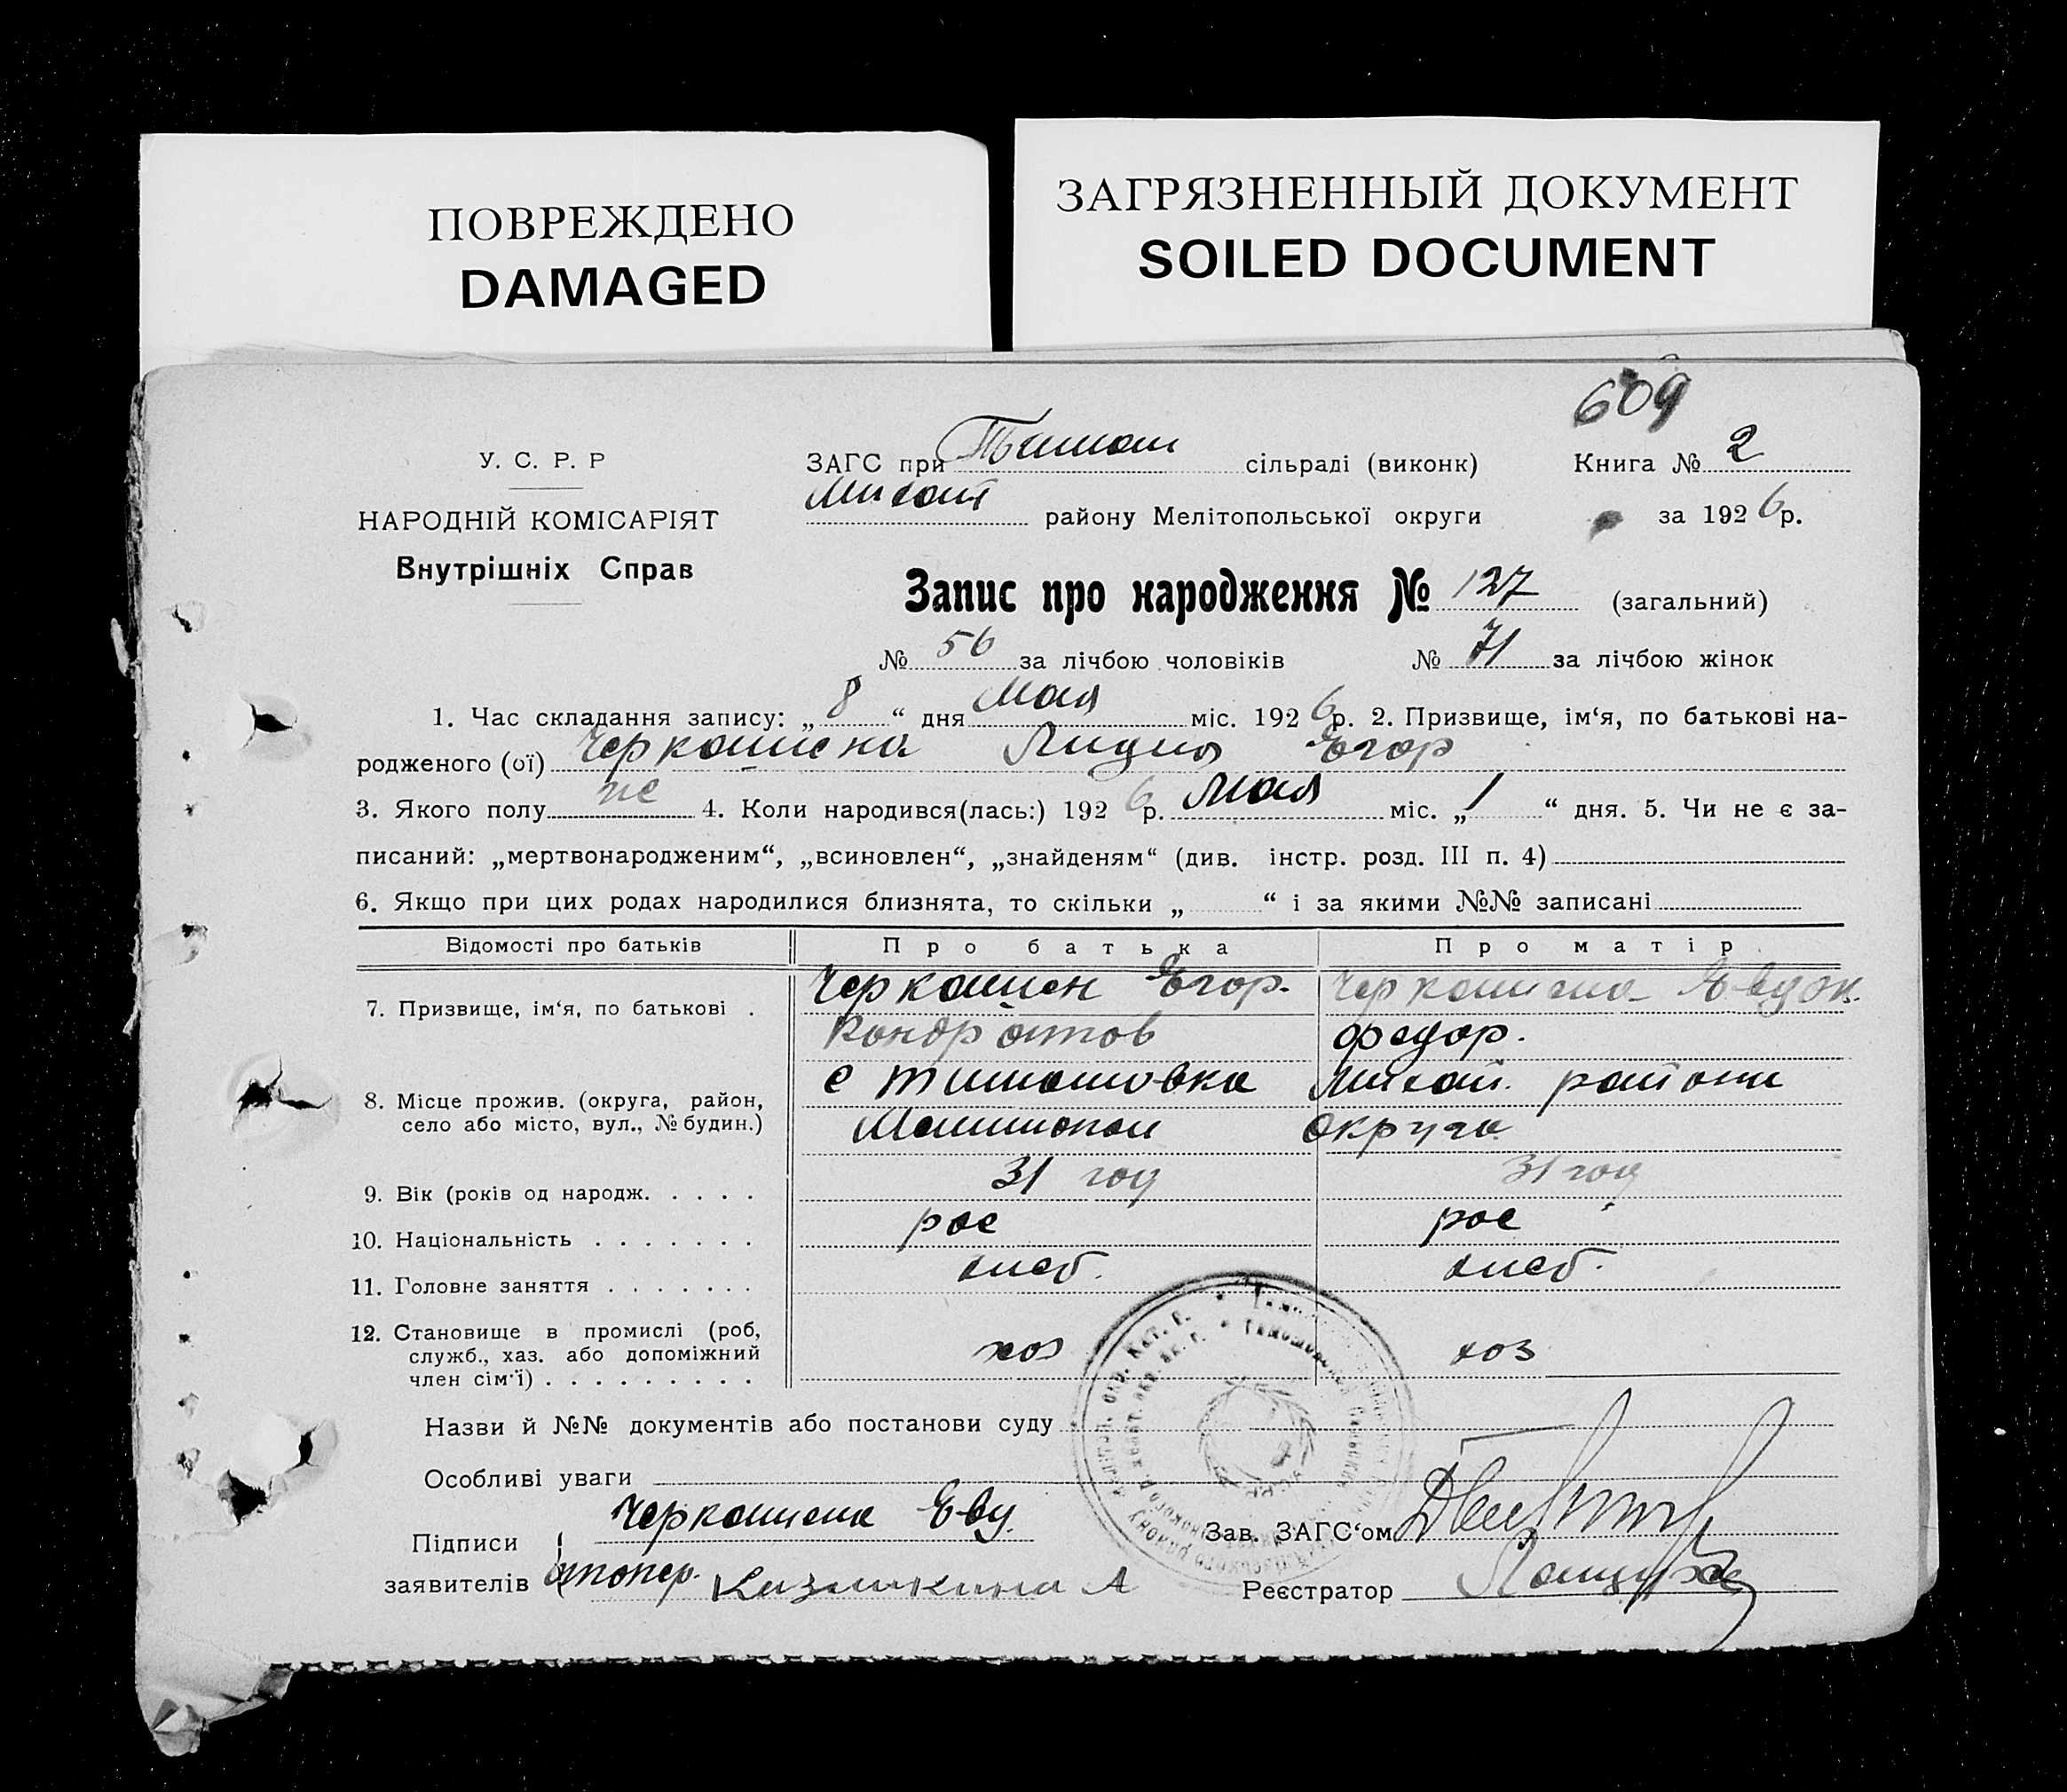 ПОВРЕЖДЕНО
DAMAGED
ЗАГРЯЗНЕННЫЙ ДОКУМЕНТ
SOILED DOCUMENT
609
У. С. Р. Р
НАРОДНІЙ КОМІСАРІЯТ
Внутрішніх Справ
ЗАГС при Тимош сільраді (виконк) Книга № 2
Михай району Мелітопольської округи за 1926 р.
Запис про народження № 127 (загальний)
№ 56 за лічбою чоловіків № 71 за лічбою жінок
1. Час складання запису: „8“ дня Мая міс. 1926 р. 2. Призвище, ім‘я, по батькові на-
родженого (ої) Черкашена Лидия Егор
3. Якого полу же 4. Коли народився(лась:) 1926 р. Мая міс. „1“ дня. 5. Чи не є за-
писаний: „мертвонародженим“, „всиновлен“, „знайденям“ (див. інстр. розд. III п. 4)
6. Якщо при цих родах народилися близнята, то скільки „ “ і за якими №№ записані
Відомості про батьків Про батька Про матір
7. Призвище, ім‘я, по батькові . Черкашен Егор. Черкашена Евдок.
Кондратов федор.
8. Місце прожив. (округа, район, с Тимошовка Михай. района
село або місто, вул., № будин.) Мелитопол округа
9. Вік (років од народж. . . . . 31 год 31 год
10. Національність . . . . . . . рос рос
11. Головне заняття . . . . . . . хлеб. хлеб.
12. Становище в промислі (роб,
служб., хаз. або допоміжний хоз хоз
член сім‘ї) . . . . . . . . .
Назви й №№ документів або постанови суду
Особливі уваги
Підписи Черкашена Евд. Зав. ЗАГС‘ом
заявителів Реєстратор